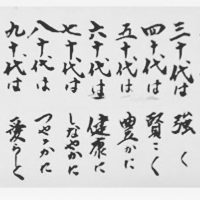 三十代は 強く
四十代は 賢こく
五十代は 豊かに
六十代は 健康に
七十代は しなやかに
八十代は つややかに
九十代は 愛らしく